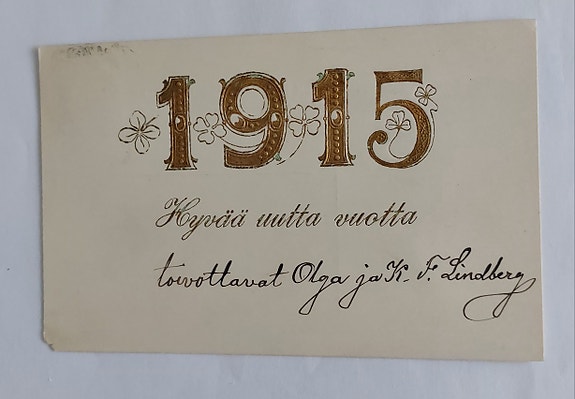 1915
Hyvää uutta vuotta
toivottavat Olga ja K. F. Lindberg